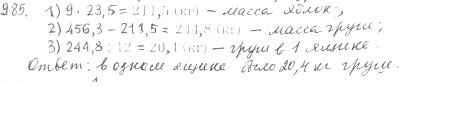 985. 1) 9 · 23,5 = 211,5 (кг) – масса яблок;
2) 456,3 – 211,5 = 244,8 (кг) – масса груш;
3) 244,8 : 12 = 20,4 (кг) – груш в 1 ящике.
Ответ: в одном ящике было 20,4 кг груш.